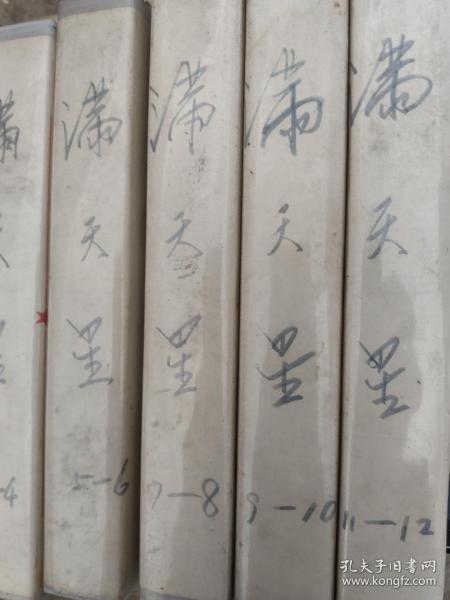 满
天
星
-4
满
天
星
5-6
满
天
星
7-8
满
天
星
9-10
满
天
星
11-12
孔夫子旧书网
www.kongfz.com